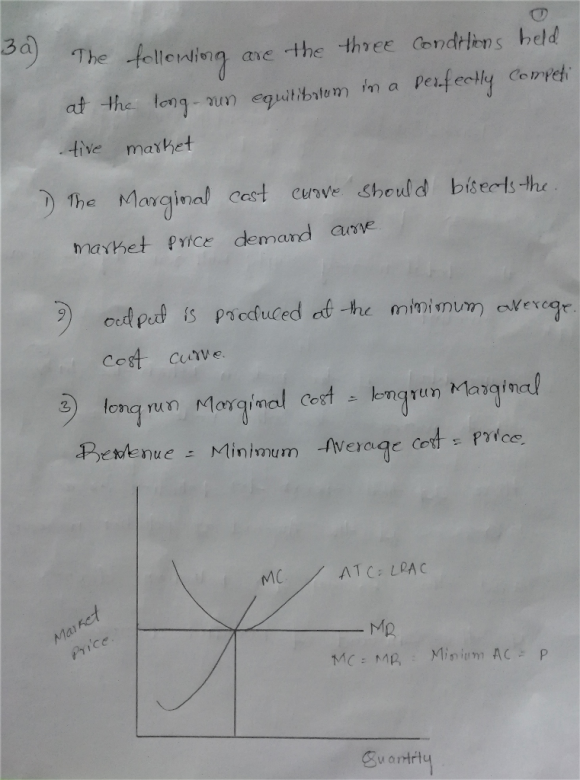 ①
3a) The following are the three conditions held
at the long-run equilibrium in a perfectly competi
-tive market
1) The Marginal cost curve should bisects the
market price demand curve
2) output is produced at the minimum average
cost curve.
3) longrun Marginal cost = longrun Marginal
Revenue = Minimum Average cost = price.
MC
ATC = LRAC
Market
price.
MR
MC = MR = Minium AC = P
Quantity